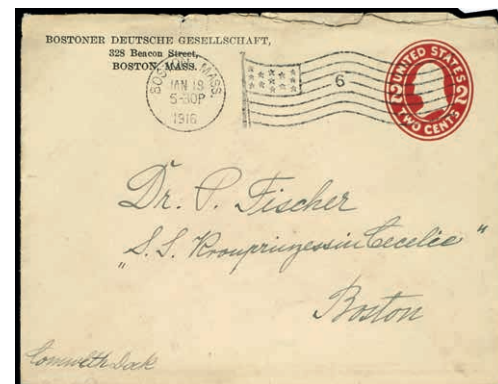 BOSTONER DEUTSCHE GESELLSCHAFT,
328 Beacon Street,
BOSTON, MASS.
BOSTON, MASS.
JAN 18
5-30P
1916
6
UNITED STATES
2 2
TWO CENTS
Dr. P. Fischer
"S. S. Kronprinzessin Cecelie"
Boston
Comwlth Dock